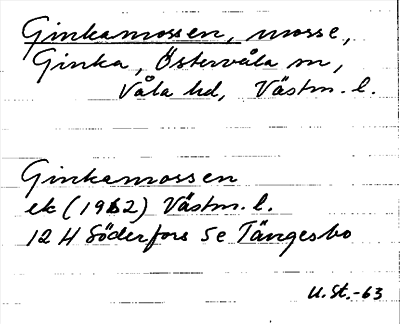 Ginkamossen, mosse,
Ginka, Östervåla sn,
Våla hd, Västm. l.
Ginkamossen
ek (1962) Västm. l.
12 H Söderfors 5e Tängesbo
U.St.-63